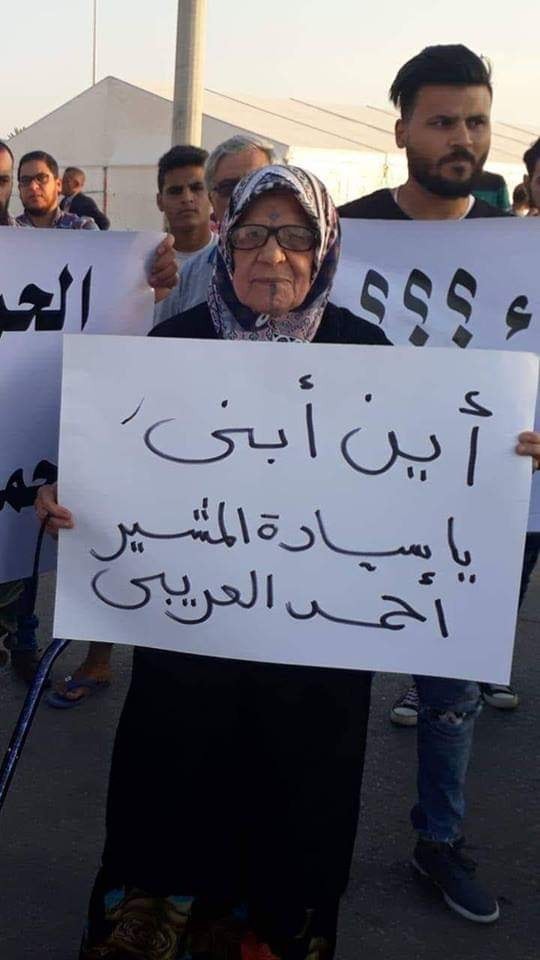 ؟؟؟ء
الحر
أين أبنى،
يا سيادة المشير
أحمد العريبى